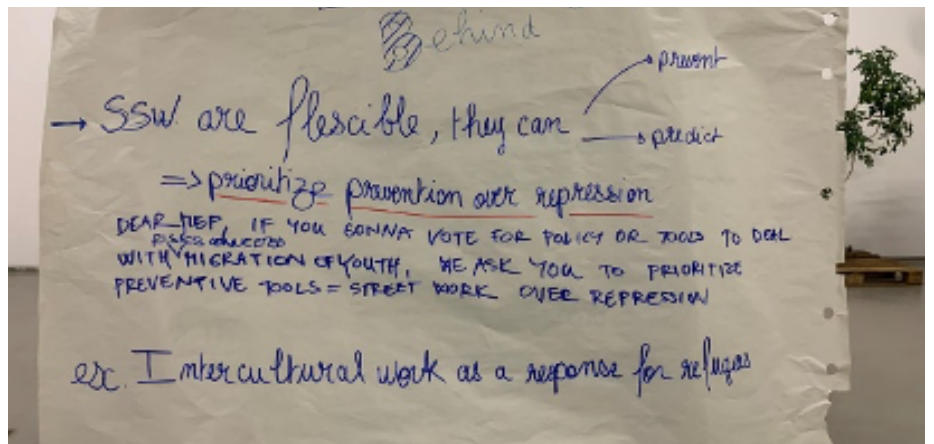 Behind
→ SSW are flescible, they can → prevent
→ predict
=> prioritize prevention over repression
DEAR MEP, IF YOU GONNA VOTE FOR POLICY OR TOOLS TO DEAL
WITH MIGRATION OF YOUTH, WE ASK YOU TO PRIORITIZE
PREVENTIVE TOOLS = STREET WORK OVER REPRESSION
esc. Intercultural work as a response for refugees